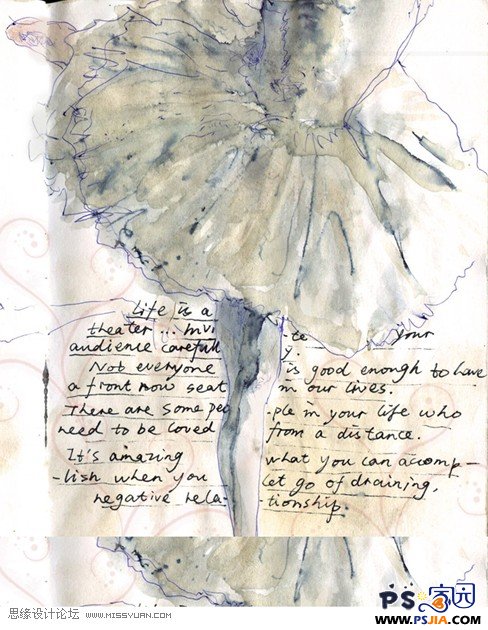 Life is a
theater ... Invi -te your
audience carefull y.
Not everyone is good enough to have
a front row seat in our lives.
There are some peo -ple in your life who
need to be loved from a distance.
It's amazing what you can accomp-
-lish when you let go of draining,
negative rela- -tionship.
思缘设计论坛 WWW.MISSYUAN.COM
PS家园
WWW.PSJIA.COM